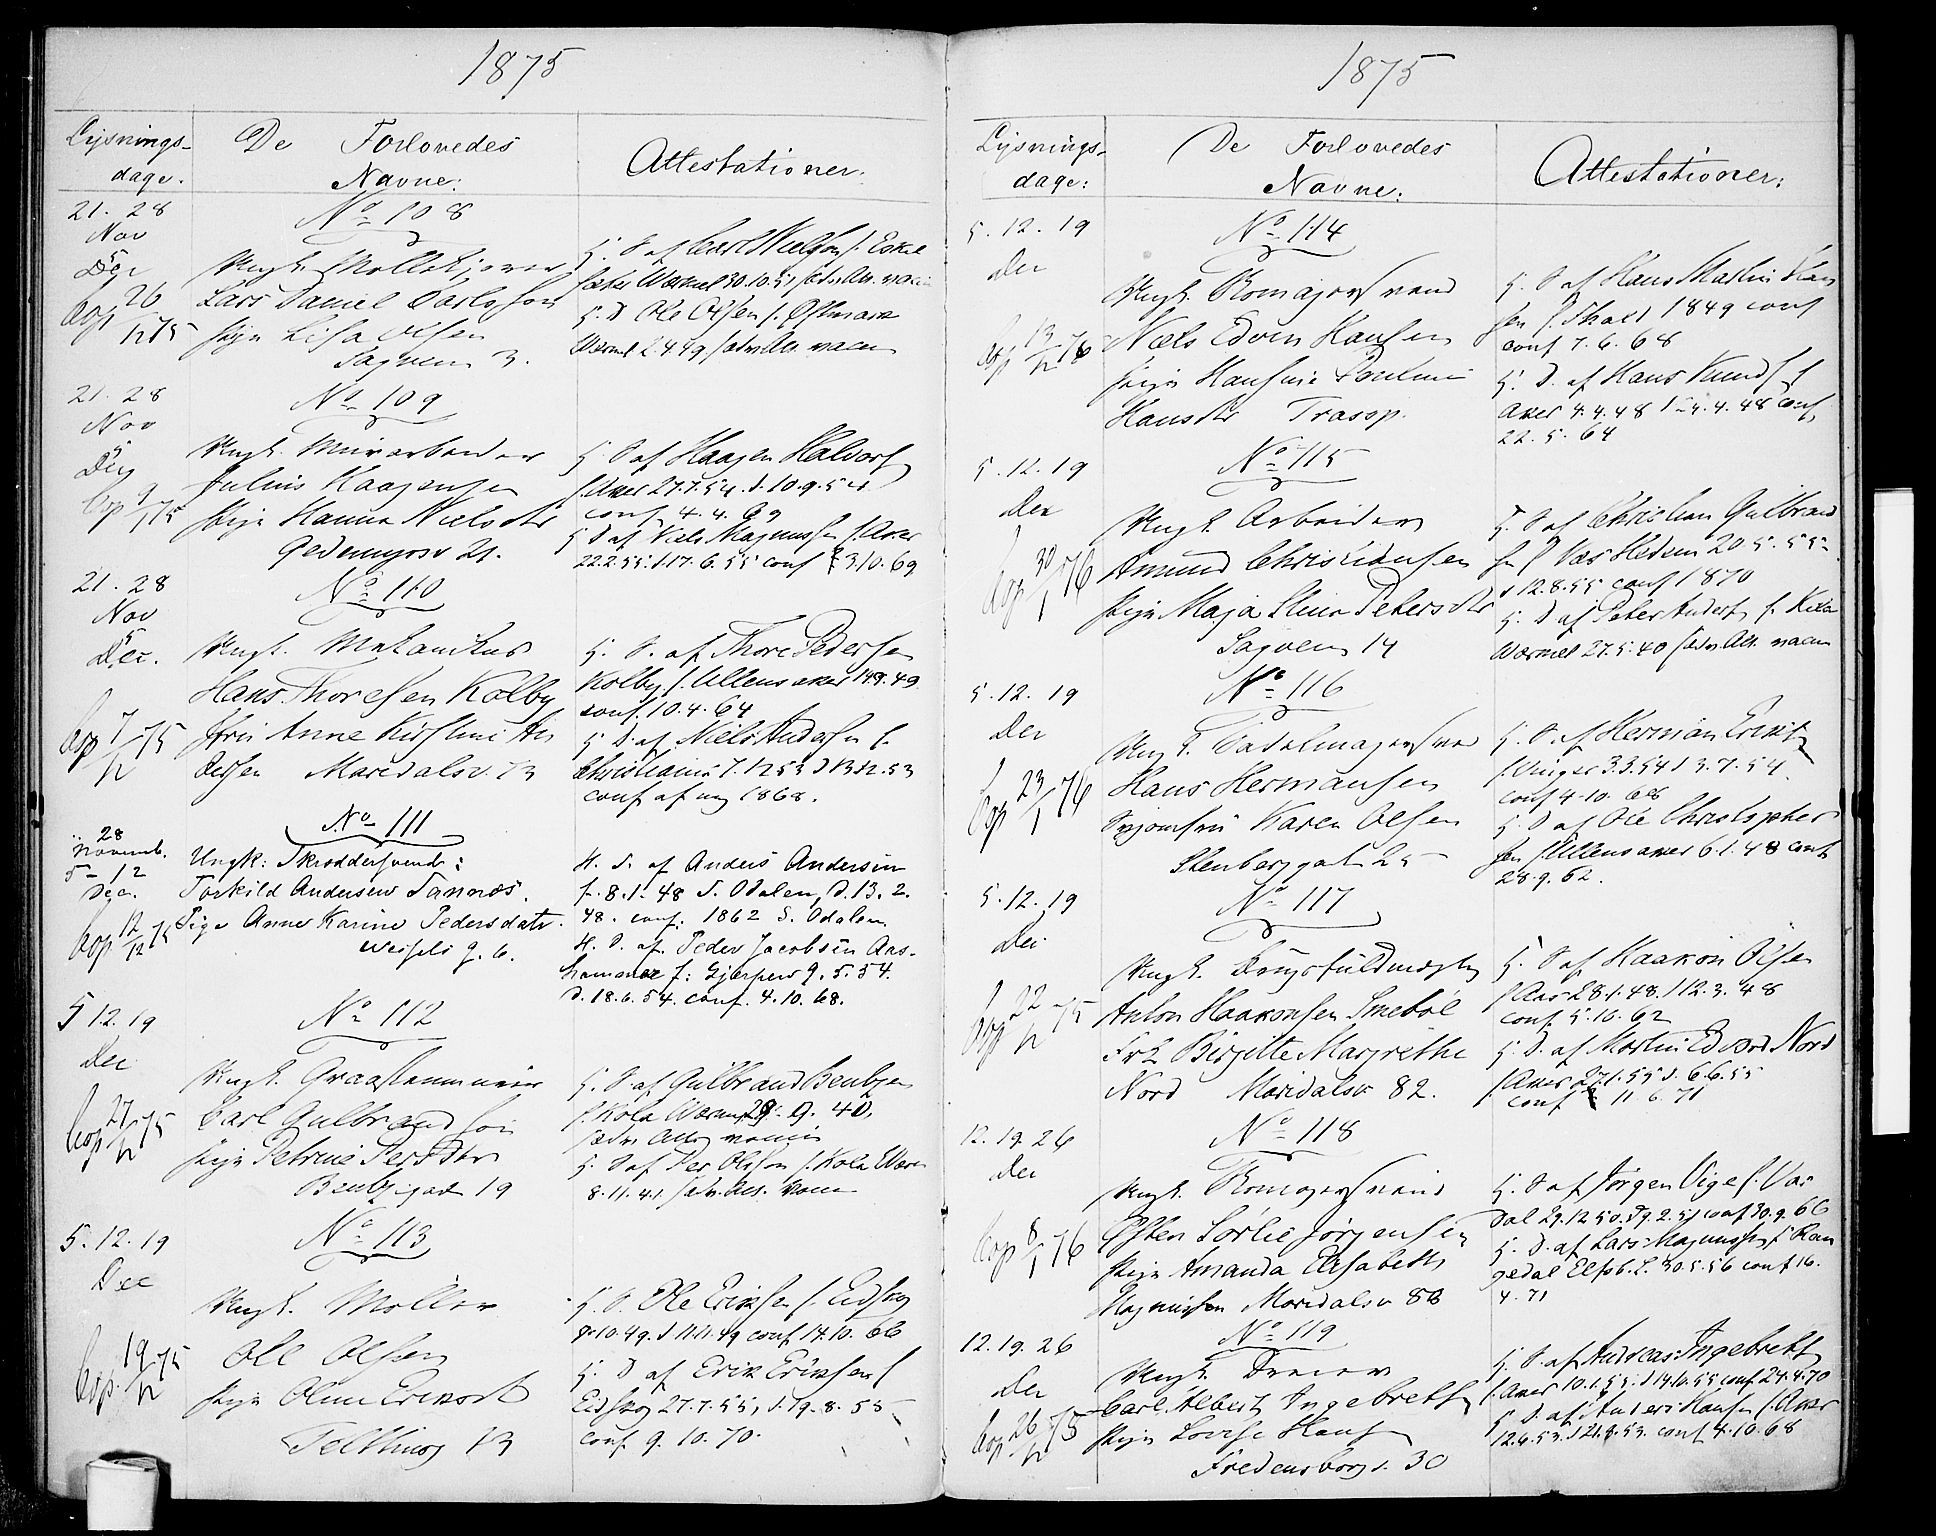 1875
Lysnings-
dage.
De Forlovedes
Navne:
Attestationer.
21. 28
Nov
5
Dec
Cop 26/12 75
No 108
Ungk.
Lars Daniel Carlsson
Pige Lisa Olsen
Sagveien 3.
H. S. af Carl Nielsen f. Eskil
sæter Wærmel 30.10.51
H. D Ole Olsen f. Østmark
Wærmel 2.4.49
21. 28
Nov
5
Cop 9/1 75
No 109
Ungk. Murarbeider
Julius Haagensen
Pige Hanna Nielsdtr
21.
H S af Haagen Halvors
f. Aker 27.7.54. d. 10.9.54
conf 4. 4. 69
H D af Niels Magnussen f. Aker
22.2.55. d. 17.6.55 conf 3.10.69
21. 28
Nov
5
Dec.
Cop 7/12 75
No 110
Ungk. Mekanikus
Hans Thoresen Kolby
Jfru Anne Kirstine An
dersen Maridalsv. 73
H. S. af Thore Pedersen
Kolby f. Ullensaker
conf. 10.4.64
H D. af Niels Andersen f.
Christiania 7.12 53 d 13 12. 53
conf af mg 1868.
28
Novemb.
5- 12
Dec.
Cop 12/12 75
No 111
Ungk: Skræddersvend:
Torkild Andersen Tannæs.
Pige Anne Karine Pedersdatr.
Wessels g. 6.
H. S. af Anders Andersen
f. 8.1.48 S. Odalen, d. 13. 2.
48. conf. 1862 S. Odalen
H. D. af Peder Jacobsen Aas-
hammer f: Gjerpen 9. 5. 54.
d. 18.6.54. conf. 4.10.68.
5 12. 19
Dec
Cop 27/12 75
No 112
Ungk.
Carl Gulbrandson
Pige Petrine Persdtr
19
H. S af Gulbrand Bentzen
f. Kola Wærmel 29. 9. 40.
H. D af Per Olsson f. Kola Wærm
8.11.41.
5. 12. 19
Dec
Cop. 19/12 75
No 113
Ungk. Møller
Ole Olsen
Pige Oline Eriksdt
13
H. S. Ole Eriksen f. Eidskog
9.10.49. d 11.11.49 conf 14.10. 66
H. D af Erik Eriksen f
Eidskog 27.7.55, d. 19. 8. 55
conf. 9. 10. 70.
1875
Lysnings-
dage:
De Forlovedes
Navne:
Attestationer:
5. 12. 19
Dec
Cop 13/12 76
No 114
Ungk.
Niels Edvin Hansen
Pige Hansine Pauline
Hansdtr Trassp.
H. S af Hans Martin Han
sen f. 1849 conf
conf 7. 6. 68
H. D. af Hans Knuds f
Aker 4.4.48 d 24. 4. 48 conf
22. 5. 64
5. 12. 19
Dec
Cop 30/1 76
No 115
Ungk. Arbeider
Amund Christiansen
Pige Maja Stina Petersdtr
Sagveien 14
H. S af Christian Gulbrand
sen f Vas Hedem 20. 5. 55
d 12.8.55 conf 1870
H. D af Peter Anders f. Kila
Wærmel 27.5.40
5. 12. 19
Dec
Cop 23/1 76
No 116
Ungk. Sadelmagersvend
Hans Hermansen
Karen Olsen
Stenberggat 25
H. S. af Herman Eriks
f. Vinger 3.3.54 d 3. 7. 54
conf 4. 10. 68
H. D af Ole Christopher
sen f Ullensaker 6.1. 48 conf
28.9. 62.
5. 12. 19
Dec
Cop 22/12 75
No 117
Ungk.
Anton Haakonsen Smebøl
Frk Birgitte Margrethe
Nord Maridalsv 82.
H. S af Haakon Olsen
f Aas 28.1.48. d 12. 3. 48
conf. 5. 10. 62
H. D. af Martin Edvard Nord
f. Aker 27.1.55 d. 6.6.55
conf 11. 6. 71
12. 19. 26
Dec
Cop 8/1 76
No 118
Ungk.
Østen Sørlie Jørgensen
Pige Amanda Elisabeth
Magnussen Maridalsv 83
H. S af Jørgen Vige f. Var
dal 29.12 50. d 9. 2. 51 conf 30.9. 66
H. D. af Lars Magnussen f Ran
gedal Elfsb. L. 30.5.56 conf 16.
4. 71
12. 19. 26
Dec
Cop 26/12 75
No 119
Ungk. Dreier
Carl Albert Ingebretsen
Pige Lovise Hansen
Fredensborgv. 30
H. S. af Andreas Ingebrets
f. Aker 10.1.55. d 14.10.55 conf 24.4.70
H. D. af Anders Hansen f. Aker
12.6.53. d 21.8.53. conf 4.10.68